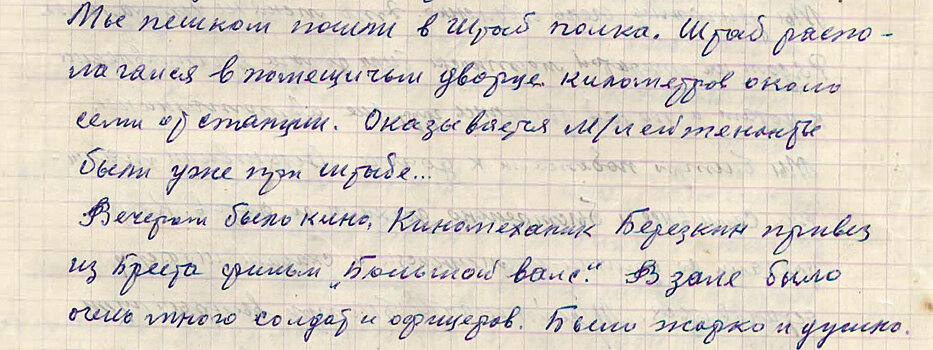 Мы пешком пошли в штаб полка. Штаб распо-
лагался в помещичьем дворце километров около
семи от станции. Оказывается м/лейтенанты
были уже при штабе...
Вечером было кино. Киномеханик Березкин привез
из Бреста фильм „Большой вальс". В зале было
очень много солдат и офицеров. Было жарко и душно.